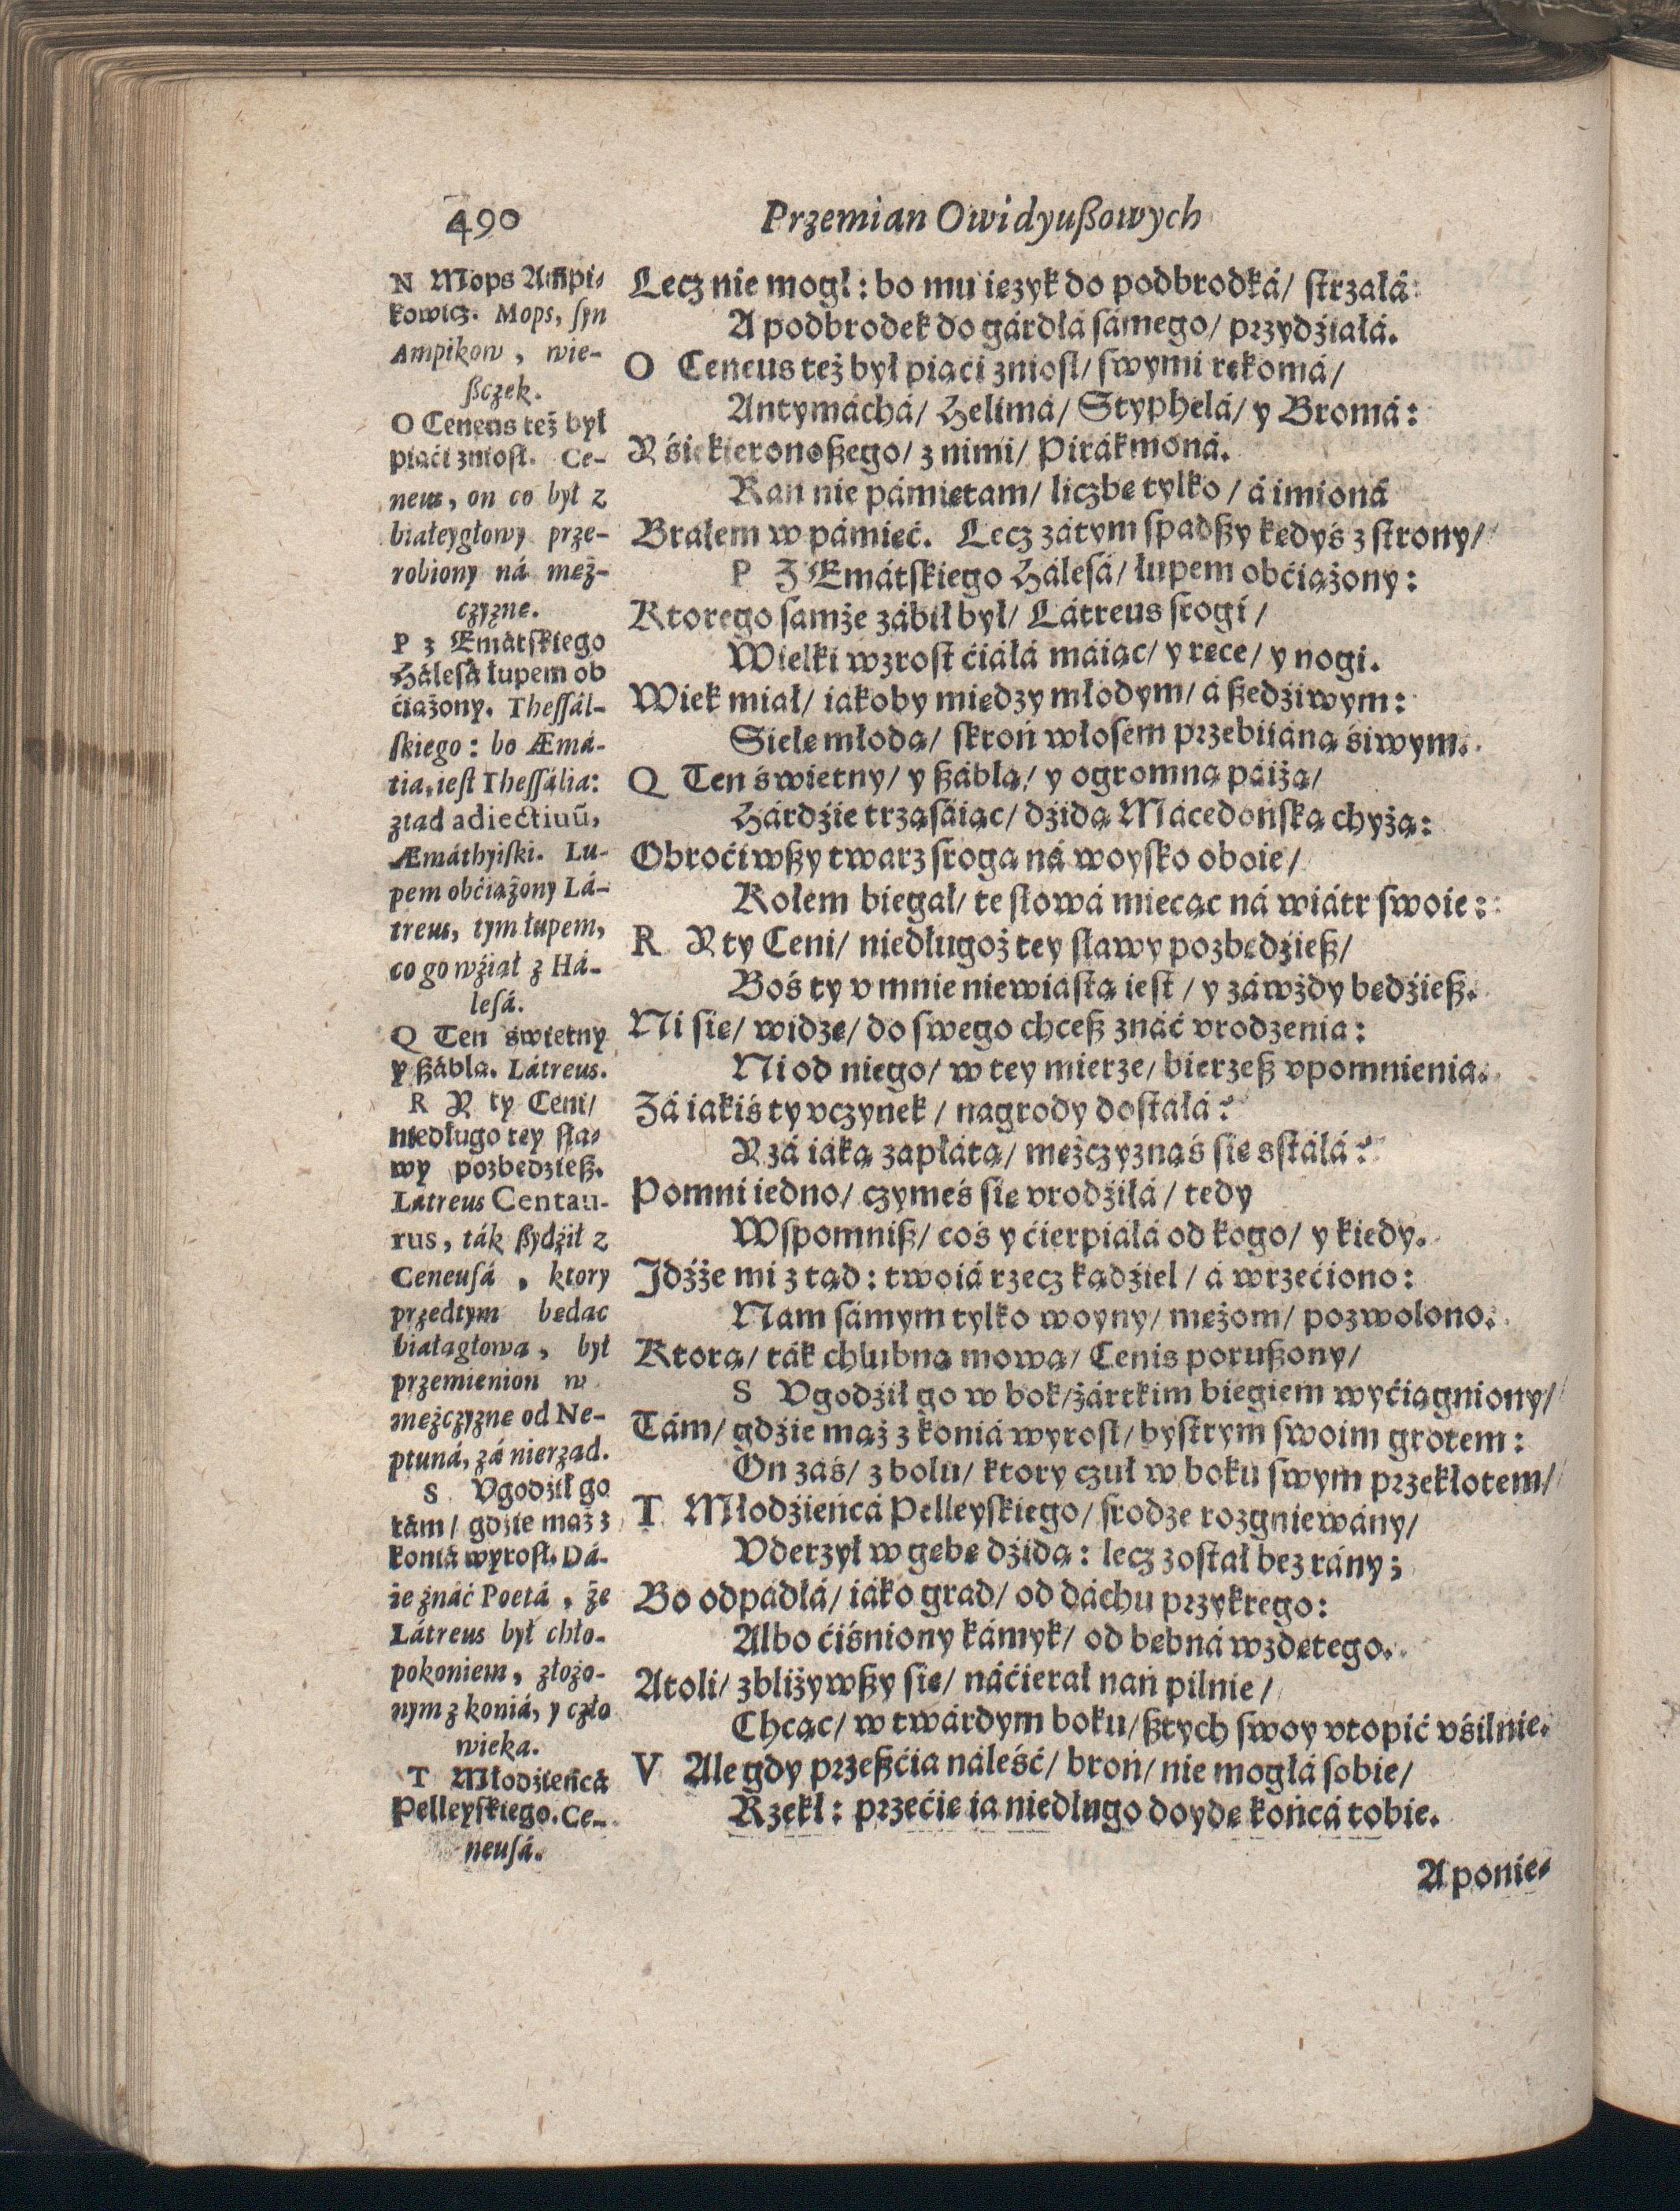 490
Przemian Owidyußowych
N Mops Ampi⸗
kowicz. Mops, ſyn
Ampikow, wie-
ßczek.
O Ceneus też był
piąći znioſł. Ce-
neus, on co był z
białeygłowy prze-
robiony ná męż-
czyznę.
P z Emátſkiego
Háleſá łupem ob
ćiążony. Theſſál-
ſkiego: bo Æmá-
tia, ieſt Theſſália:
ztąd adiectiuũ,
Æmáthyiſki. Lu-
pem obćiążony Lá-
treus, tym łupem,
co go wźiął z Há-
leſá.
Q Ten świetny
y ßáblą. Látreus.
R Y ty Ceni/
niedługo tey ſła⸗
wy pozbędzieß.
Latreus Centau-
rus, ták ßydźił z
Ceneuſá, ktory
przedtym będąc
białągłową, był
przemienion w
mężczyznę od Ne-
ptuná, zá nierząd.
S Vgodźił go
tám/ gdźie mąż z
koniá wyroſł. Dá-
ie znáć Poetá, że
Látreus był chło-
pokoniem, złożo-
nym z koniá, y czło
wieká.
T Młodźieńcá
Pelleyſkiego. Ce-
neuſá.
Lecz nie mogł: bo mu ięzyk do podbrodká/ ſtrzałá
A podbrodek do gárdłá ſámego/ przydźiáłá.
O Ceneus też był piąći znioſł/ ſwymi rękomá/
Antymáchá/ Helimá/ Styphelá/ y Bromá:
Y śiekieronoßego/ z nimi/ Pirákmoná.
Ran nie pámiętam/ liczbę tylko/ á imioná
Brałem w pámięć. Lecz zátym ſpadßy kędyś z ſtrony/
P Z Emátſkiego Háleſá/ łupem obćiążony:
Ktorego ſamże zábił był/ Látreus ſrogi/
Wielki wzroſt ćiáłá máiąc/ y ręce/ y nogi.
Wiek miał/ iakoby między młodym/ á ßedźiwym:
Siełę młodą/ ſkroń włoſem przebiiáną śiwym.
Q Ten świetny/ y ßáblą/ y ogromną páiżą/
Hárdźie trząſáiąc/ dźidą Mácedońſką chyżą:
Obroćiwßy twarz ſrogą ná woyſko oboie/
Kołem biegał/ te ſłowá miecąc ná wiátr ſwoie:
R Y ty Ceni/ niedługoż tey ſławy pozbędźieß/
Boś ty v mnie niewiáſtą ieſt/ y záwżdy będźieß.
Ni ſię/ widzę/ do ſwego chceß znáć vrodzenia:
Ni od niego/ w tey mierze/ bierzeß vpomnienia.
Zá iakiś ty vczynek/ nagrody doſtáłá?
Y zá iáką zapłátą/ mężczyznąś ſię sſtáłá?
Pomni iedno/ czymeś ſię vrodźiłá/ tedy
Wſpomniß/ coś y ćierpiáłá od kogo/ y kiedy.
Jdźże mi z tąd: twoiá rzecz kądźiel/ á wrzećiono:
Nam ſámym tylko woyny/ mężom/ pozwolono.
Ktorą/ ták chlubną mową/ Cenis porußony/
S Vgodźił go w bok/ żártkim biegiem wyćiągniony/
Tám/ gdźie mąż z koniá wyroſł/ byſtrym ſwoim grotem:
On záś/ z bolu/ ktory czuł w boku ſwym przekłotem/
T Młodźieńcá Pelleyſkiego/ ſrodze rozgniewány/
Vderzył w gębę dźidą: lecz zoſtał bez rány;
Bo odpádłá/ iáko grad/ od dáchu przykrego:
Albo ćiśniony kámyk/ od bębná wzdętego.
Atoli/ zbliżywßy ſię/ náćierał nań pilnie/
Chcąc/ w twárdym boku/ ßtych ſwoy vtopić vśilnie.
V Ale gdy przeßćia náleść/ broń/ nie mogłá ſobie/
Rzekł: przećię ia niedługo doydę końcá tobie.
A ponie⸗